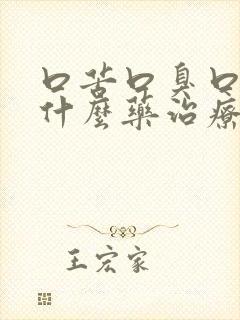 口苦口臭口
什麼藥治療
王宏家